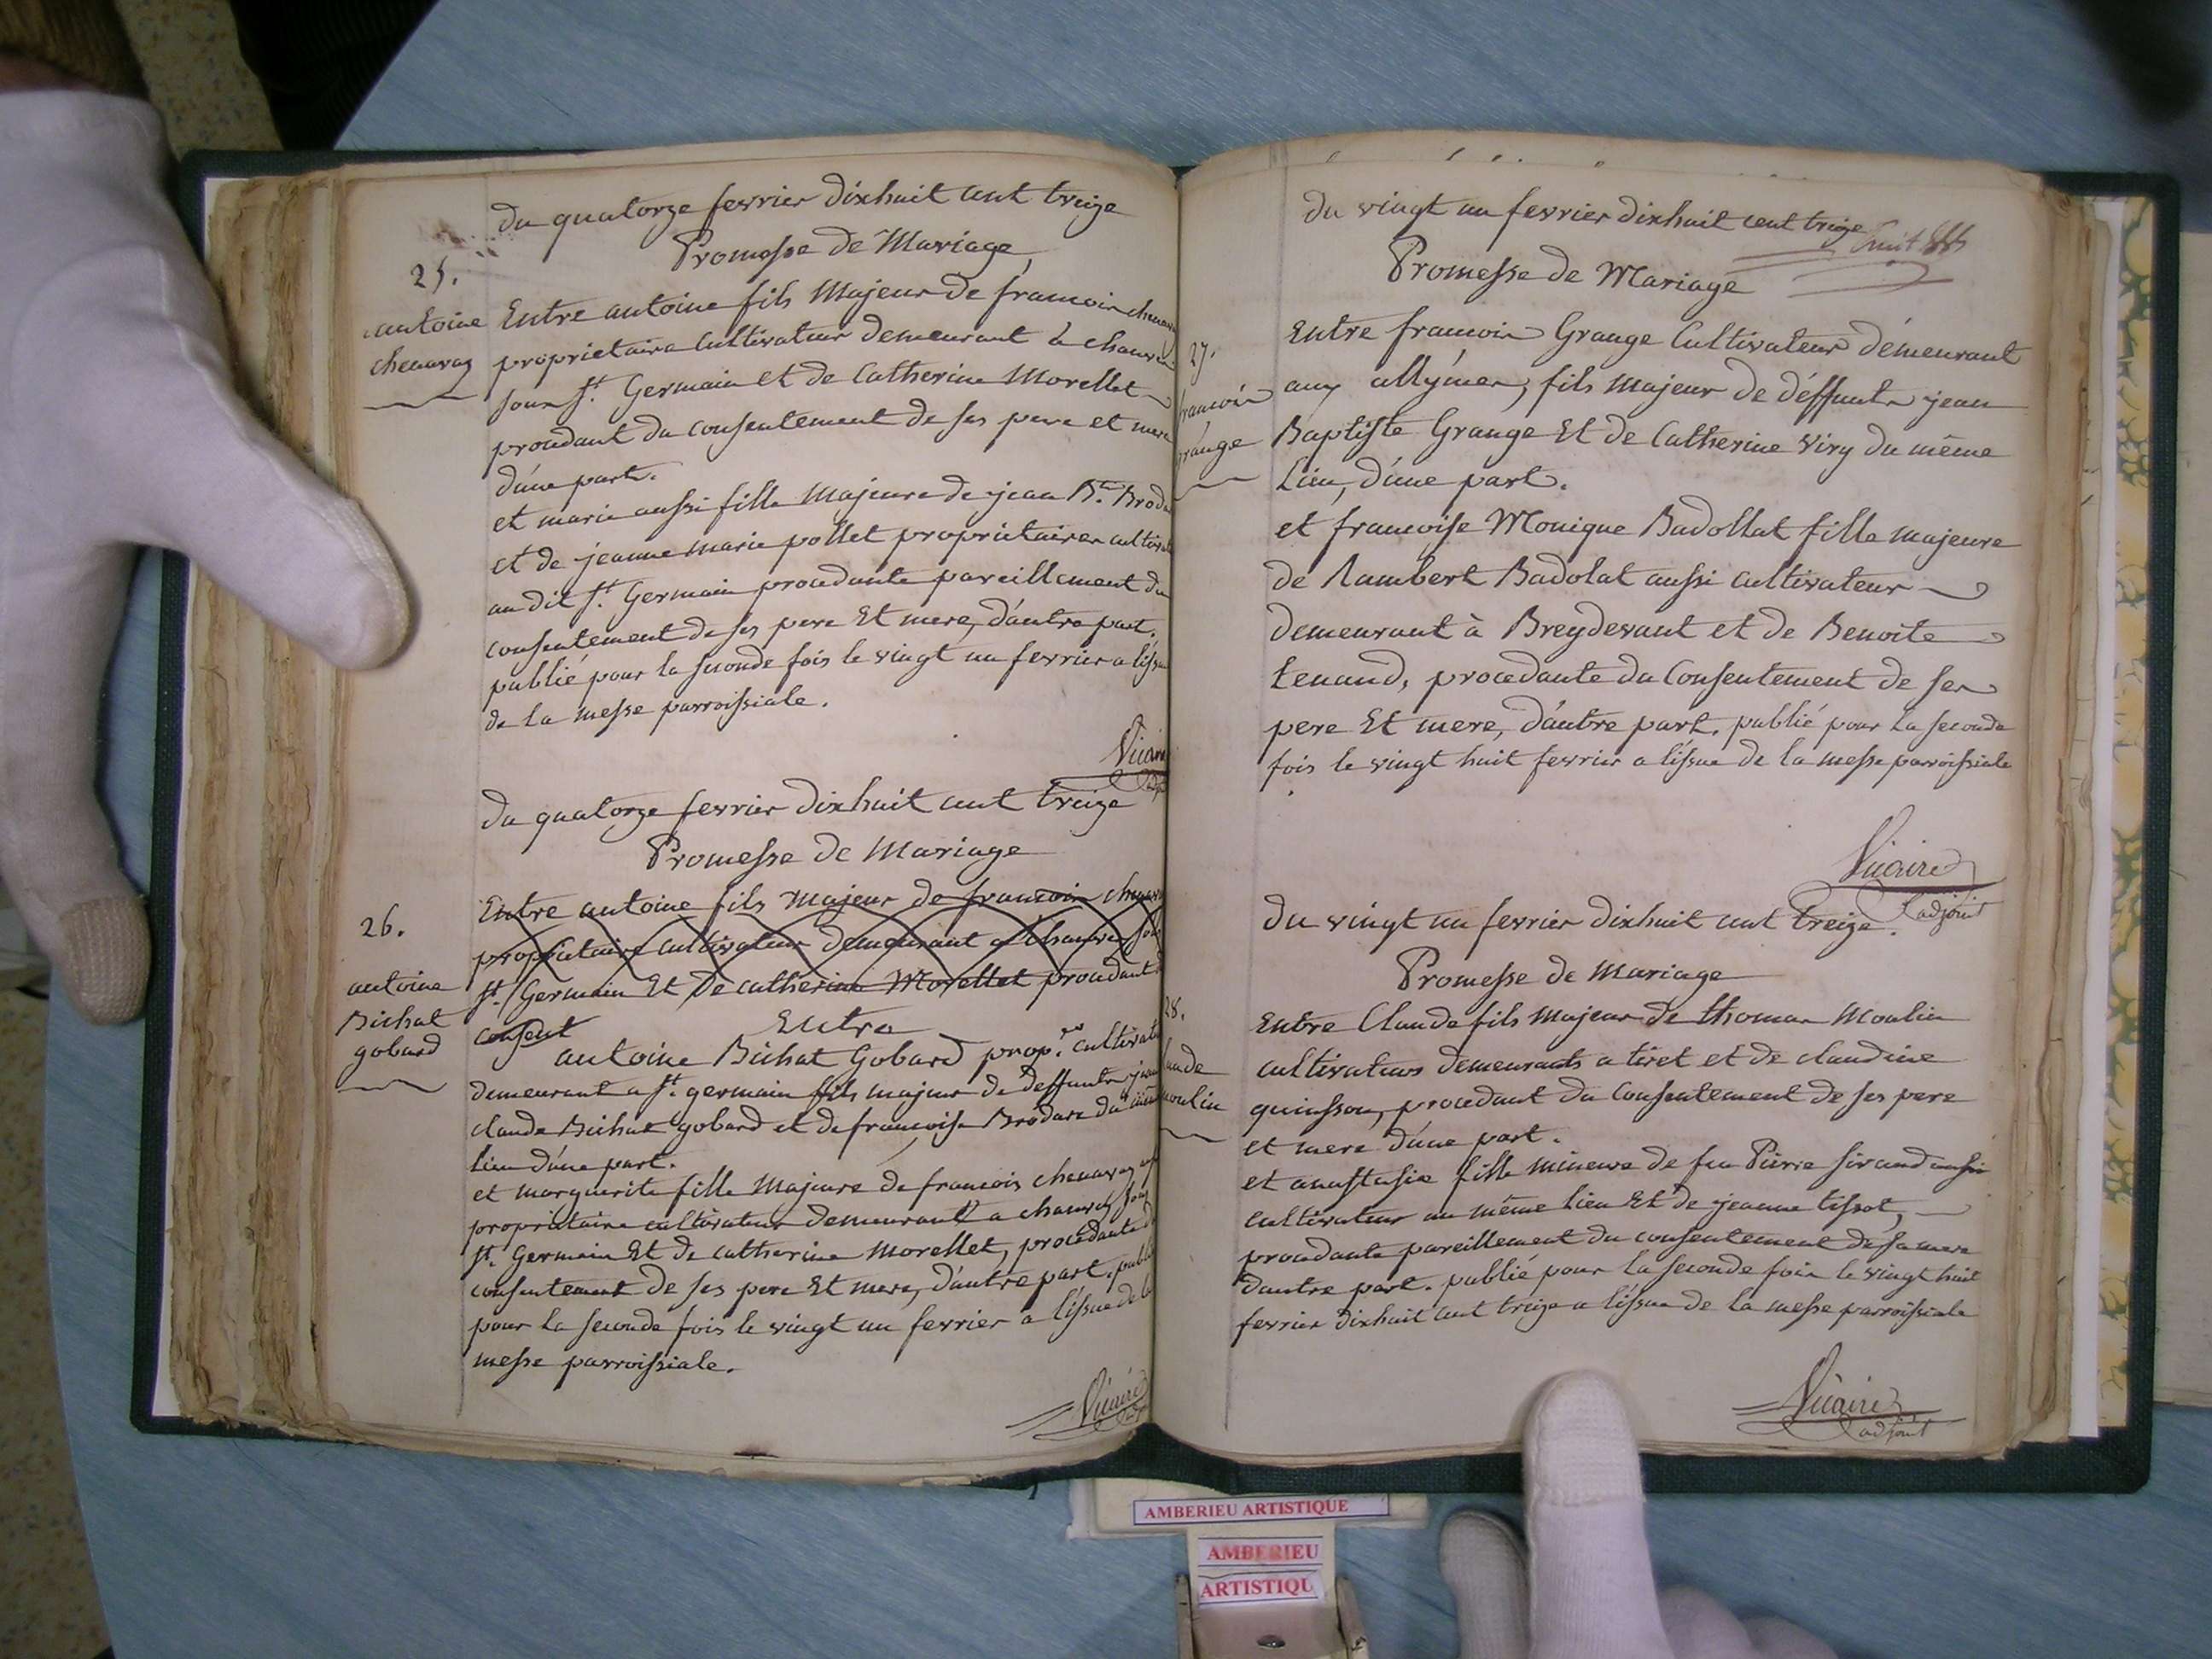 du quatorze fevrier dixhuit cent treize
Promesse de Mariage
25.
antoine
chenavaz
Entre antoine fils Majeur de francois
propriétaire Cultivateur demeurant à
sous St. Germain et de Catherine Morellet
procedant du consentement de ses pere et mere
d'une part.
et marie aussi fille Majeure de jean Bte.
et de jeanne marie pollet proprietaires
au dit St. Germain procedante pareillement du
consentement de ses pere Et mere, d'autre part.
publié pour la seconde fois le vingt un fevrier a
de la messe parroissiale.
Vicaire
du quatorze fevrier dixhuit cent treize
Promesse de Mariage
26.
antoine
Bichat
gobard
Entre antoine fils Majeur de francois
propriétaire cultivateur demeurant a
St. Germain Et de catherine Morellet procedant
consent Entre
antoine Bichat Gobard prop.re
demeurant a St. germain fils majeur de deffunts jean
claude Bichat gobard et de francoise Brodare du
lieu d'une part.
et marguerite fille Majeure de francois chenavaz
proprietaire cultivateur demeurant a chauvez sous
St. Germain Et de catherine Morellet, procedante
consentement de ses pere Et mere, d'autre part.
pour la seconde fois le vingt un fevrier a l'issue de la
messe parroissiale.
Vicaire
du vingt un fevrier dixhuit cent treize
Promesse de Mariage
27.
Entre francois Grange Cultivateur démeurant
aux allymes, fils majeur de déffunts jean
Baptiste Grange Et de Catherine Viry du même
Lieu, d'une part.
et francoise Monique Badollat fille majeure
de Rambert Badolat aussi cultivateur
demeurant à Breydevant et de Benoite
tenand, procedante du Consentement de ses
pere Et mere, d'autre part. publié pour la seconde
fois le vingt huit fevrier a l'issue de la messe parroissiale
Vicaire
adjoint
du vingt un fevrier dixhuit cent treize.
Promesse de Mariage
28.
Entre Claude fils Majeur de thomas Moulin
cultivateurs demeurants a tiret et de claudine
quinsson, procedant du Consentement de ses pere
et mere d'une part.
et anastasie fille mineure de feu Pierre sirand aussi
cultivateur au même lieu Et de jeanne tissot,
procedante pareillement du consentement de sa mere
d'autre part. publié pour la seconde fois le vingt huit
fevrier dixhuit cent treize a l'issue de la messe parroissiale
Vicaire
adjoint
AMBERIEU ARTISTIQUE
AMBERIEU
ARTISTIQU